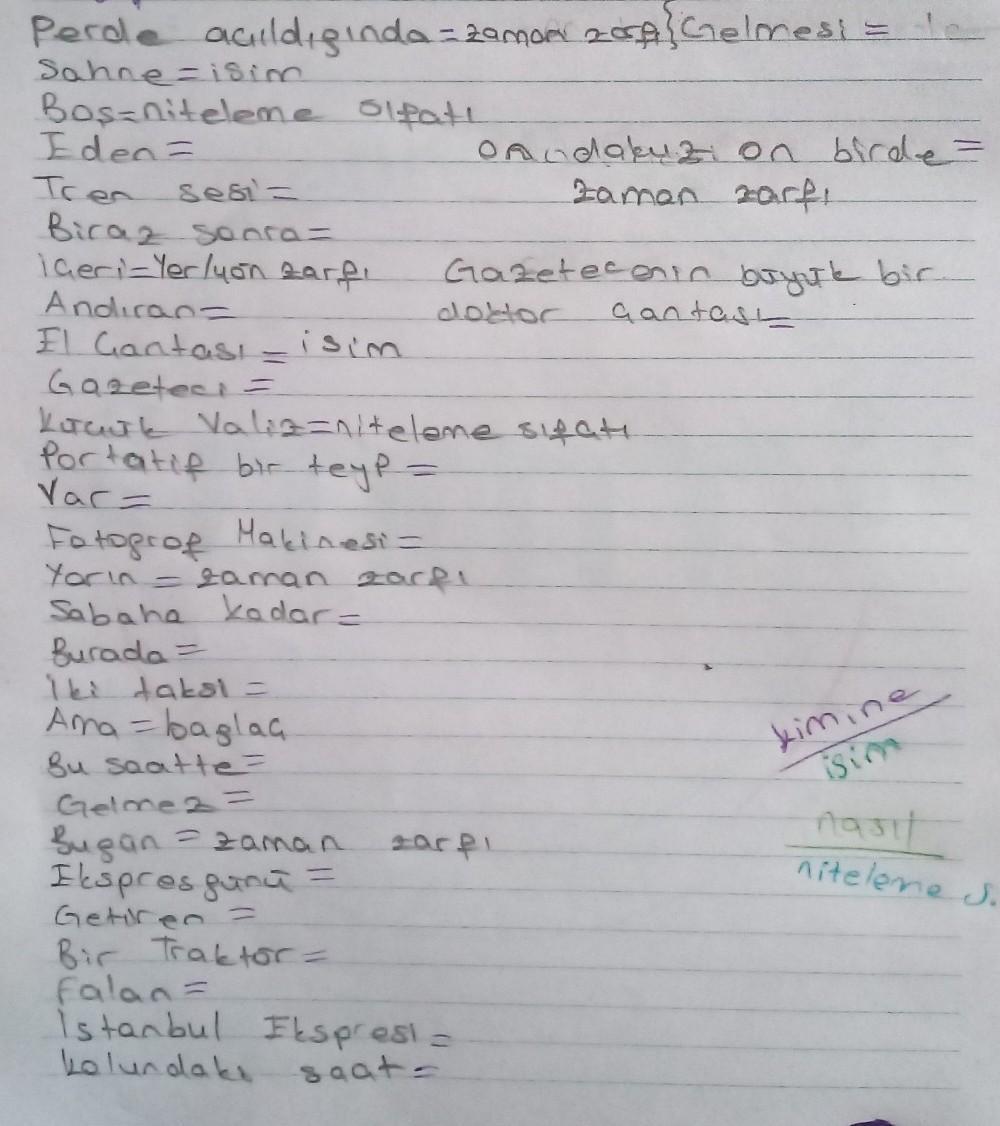 Perde açıldıgında = zaman zarfı } Gelmesi =
Sahne = isim
Boş = niteleme sıfatı
Eden =
on birde =
Tren sesi =
zaman zarfı
Biraz sonra =
içeri = Yer/yön zarfı
Gazetecenin büyük bir
Andıran =
doktor çantası =
El Çantası = isim
Gazeteci =
Küçük Valiz = niteleme sıfatı
Portatif bir teyp =
Var =
Fotograf Makinesi =
Yarın = zaman zarfı
Sabaha kadar =
Burada =
İki taksi =
Ama = baglaç
kimine
isim
Bu saatte =
Gelmez =
nasıl
Bugün = zaman zarfı
niteleme s.
Ekspres günü =
Getiren =
Bir Traktör =
falan =
İstanbul Ekspresi =
kolundaki saat =